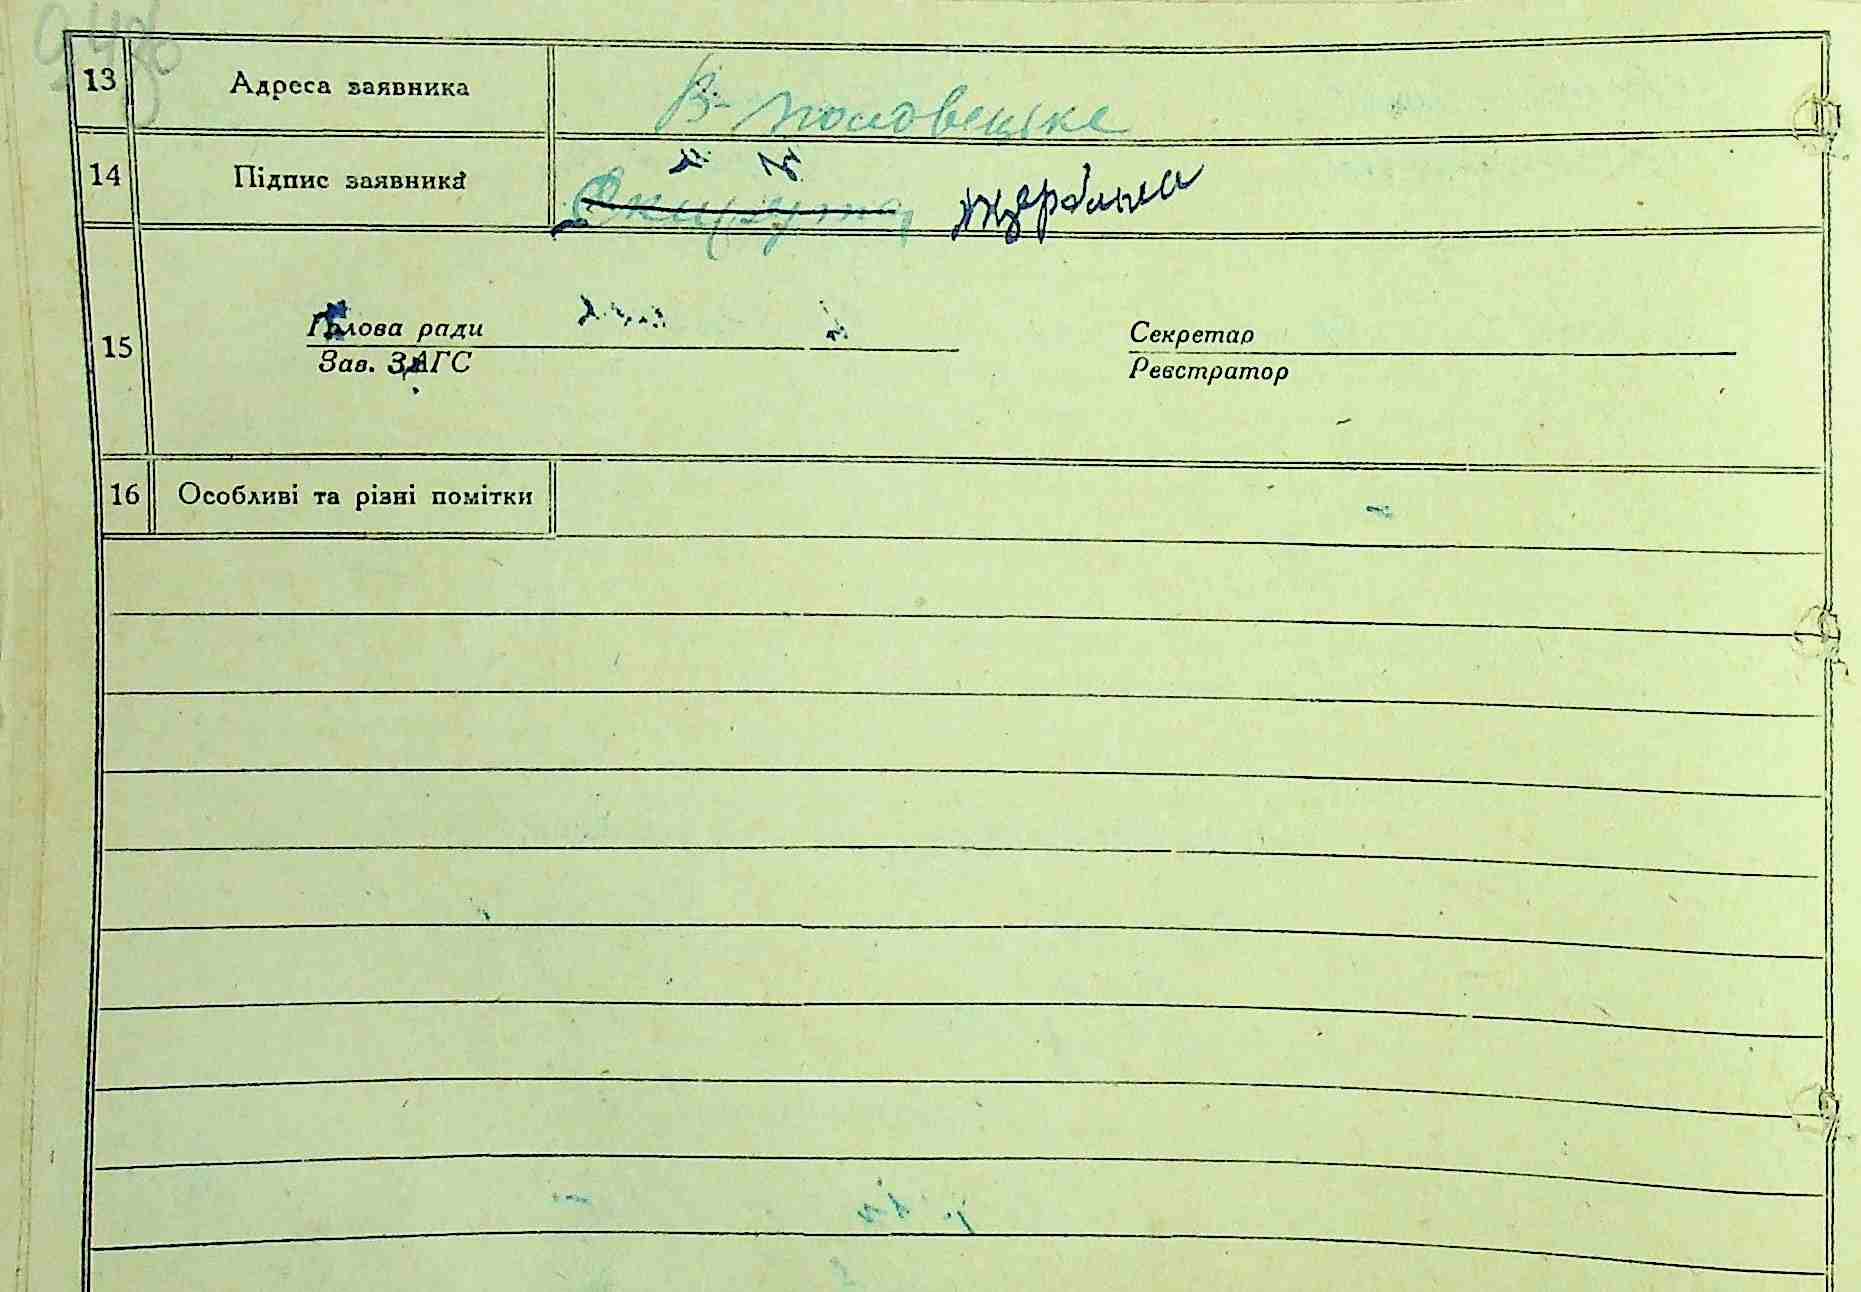 13 Адреса заявника В-половецьке
14 Підпис заявника Щербина
15
Голова ради Секретар
Зав. ЗАГС Реєстратор
16 Особливі та різні помітки